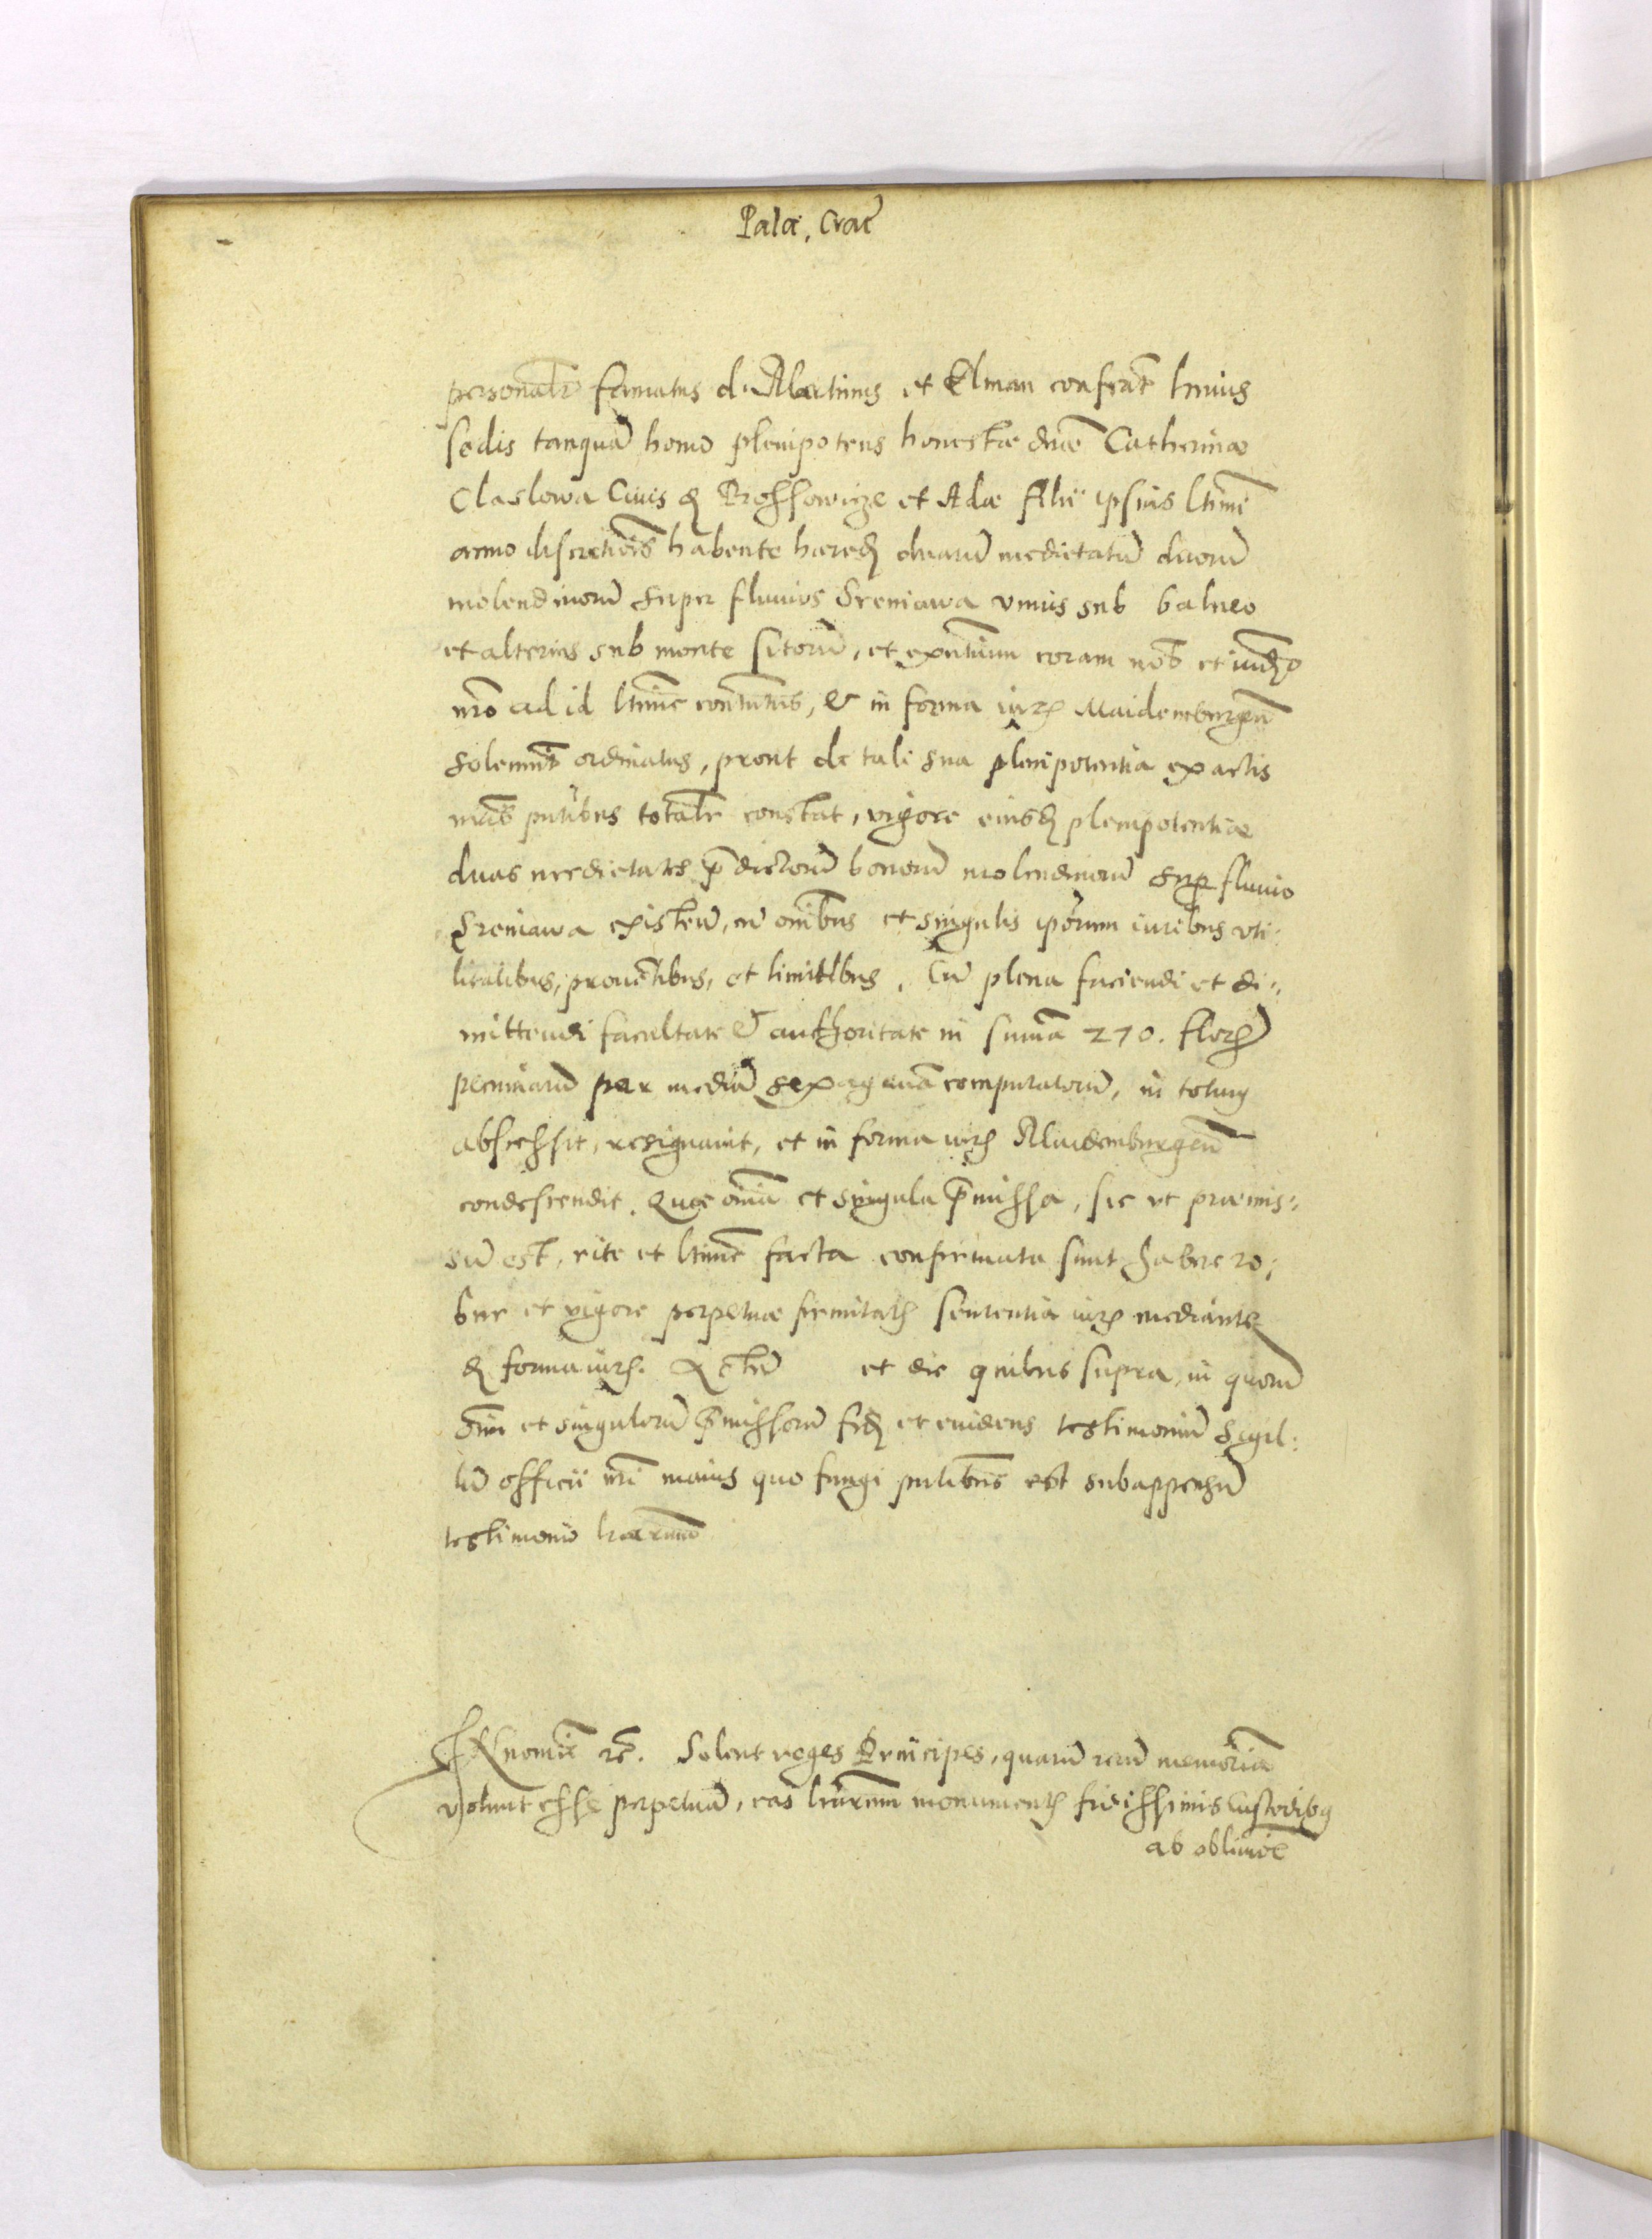 Palat, Crac
personalr famatus d. Martinus et Elman confrat huius
sedis tanquā homo plenipotens honestæ dnæ Catherinæ
Claslowa Civis de Proshowicze et Adæ filii ipsius ltime
anno discretiois habente hæred duarū medietatū duorū
molendinorū super fluvios Sreniawa unius sub balneo
et alterius sub monte sitorū, et exntium coram nob et iudo
nro ad id ltime conntutus, & in forma iuris Maidemburgen
solemnit ordinatus, prout de tali sua plenipotentia ex actis
nris pntibus totalr constat, vigore eiusd plenipotentiæ
duas medietates p̄dictorū bonorū molendinorū sup fluvio
Sreniawa existen, cū omibus et singulis iporum iuribus uti:
litatibus, proventibus, et limitibus, Cū plena faciendi et di:,
mittendi facultate & authoritate in sumā 270. florz
pecuniarū per mediā sexagenā computatorū, in totum
abscessit, resignavit, et in forma iuris Maidemburgen
condescendit, Quæ omīa et singula p̄missa, sic ut præmis:,
sū est, rite et ltime facta confirmata sunt habere ro:
bur et vigore perpetuæ firmitatis sententia iuris mediante
de forma iuris. Actū et die quibus supra, in quorū
omi et singulorū p̄missorū fid et evidens testimoniū Sigil:
lū officii nri maius quo fungi pntibus est subappensū
testimonio lrarum
In nomīe rc. Solent reges Principes, quarū rerū memoriā
volunt esse perpetuā, eas lrarum monumentis fidissimis custodibq
ab oblivioe